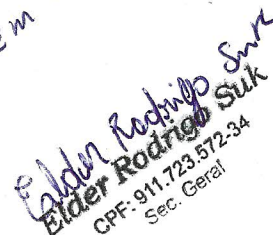 em
Elder Rodrigo Suk
Elder Rodrigo Suk
CPF: 911.723.572-34
Sec. Geral